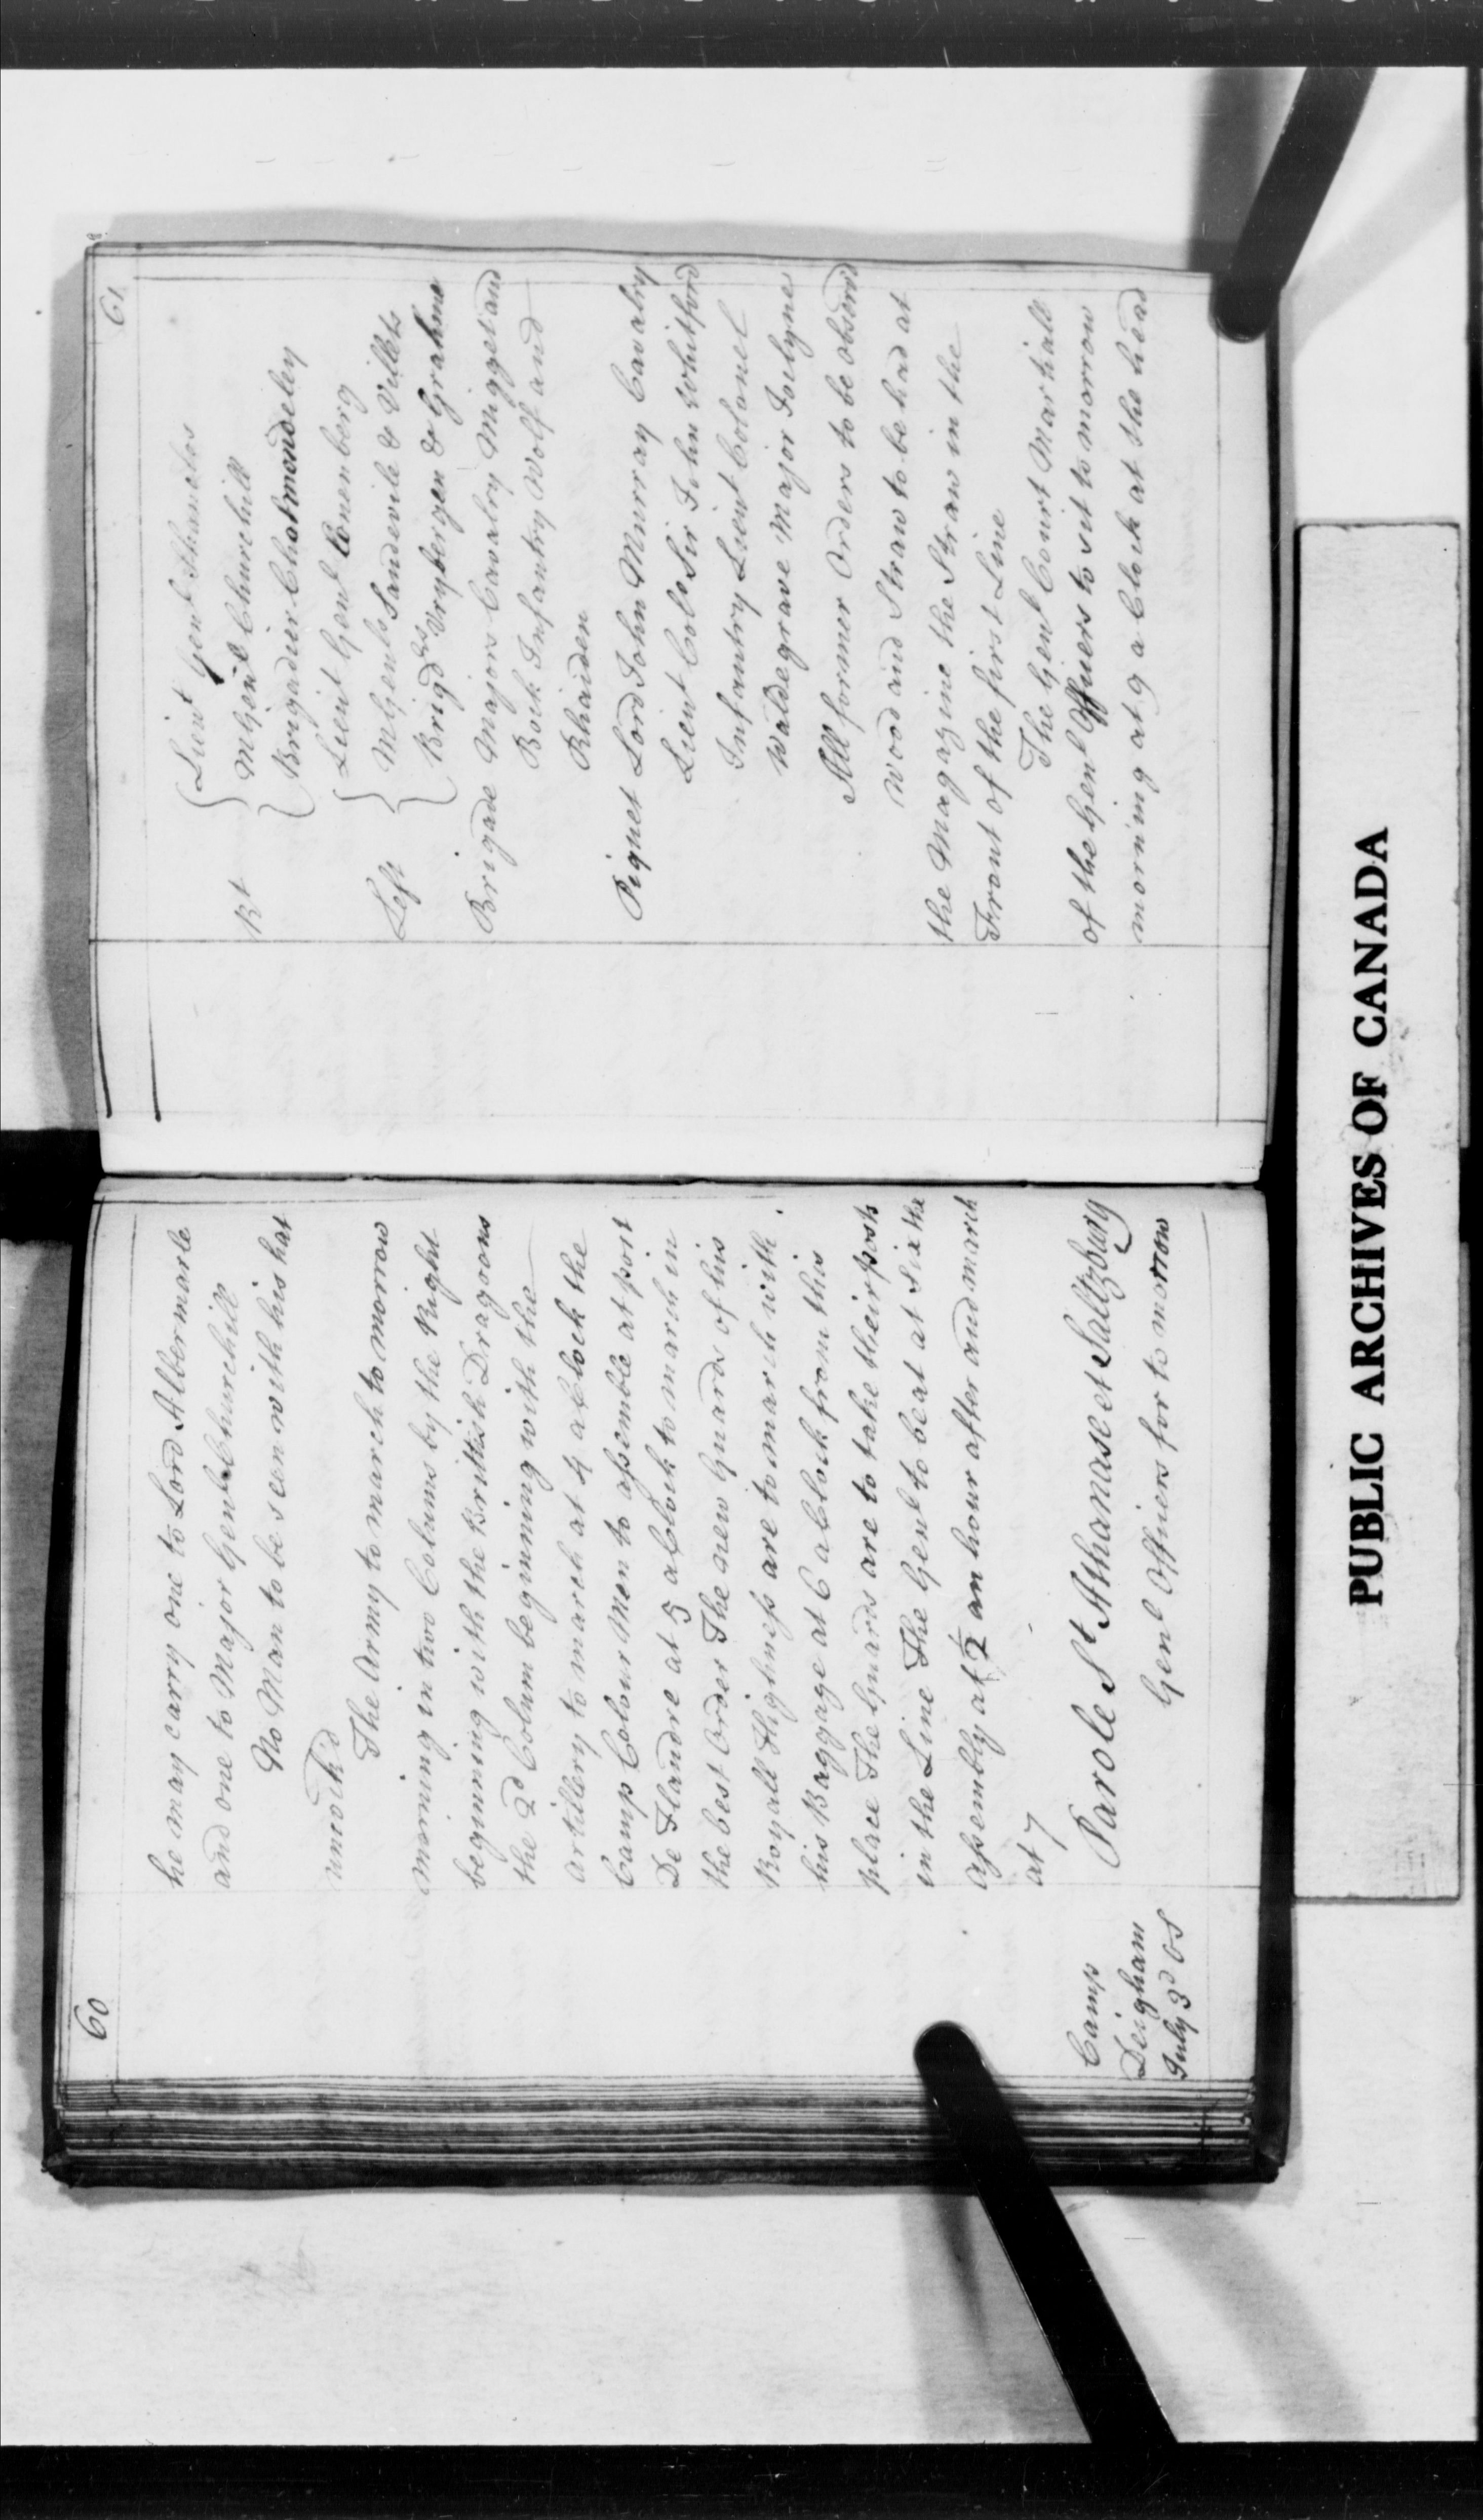 60
he may carry one to Lord Albermarle
and one to Major Genl Churchill
No Man to be seen with his hat
uncock'd
The Army to march to morrow
morning in two Colums by the Right
beginning with the Brittish Dragoons
the 2d Colum beginning with the
Artillery to march at 4 a Clock the
Camp Colour Men to assemble at port
De Flandre at 5 a Clock to march in
the best Order The new Guards of his
Royall Highness are to march with
his Baggage at 6 a Clock from this
place The Guards are to take their posts
in the Line The Genl to beat at Six the
Assembly at ½ an hour after and march
at 7
Camp
Deigham
July 3d OS
Parole St Athanase et Saltzburg
Genl Officers for to morrow
61
Rt
Lieut Genl
MGenl Churchill
Brigadier Cholmondeley
Left
Lieut Genl Conenberg
MGenls Sandevile & Villets
Brigdrs Vrybergen & Grahme
Brigade Majors Cavalry Migget and
Bock Infantry Wolf and
Rhaiden
Piquet Lord John Murray Cavalry
Lieut Colo Sir John Whitford
Infantry Lieut Colonel
Waldegrave Major Joclyne
All former Orders to be observd
Wood and Straw to be had at
the Magazine the Straw in the
Front of the first Line
The Genl Court Martiall
of the Genl Officers to sit to morrow
morning at 9 a Clock at the head
PUBLIC ARCHIVES OF CANADA